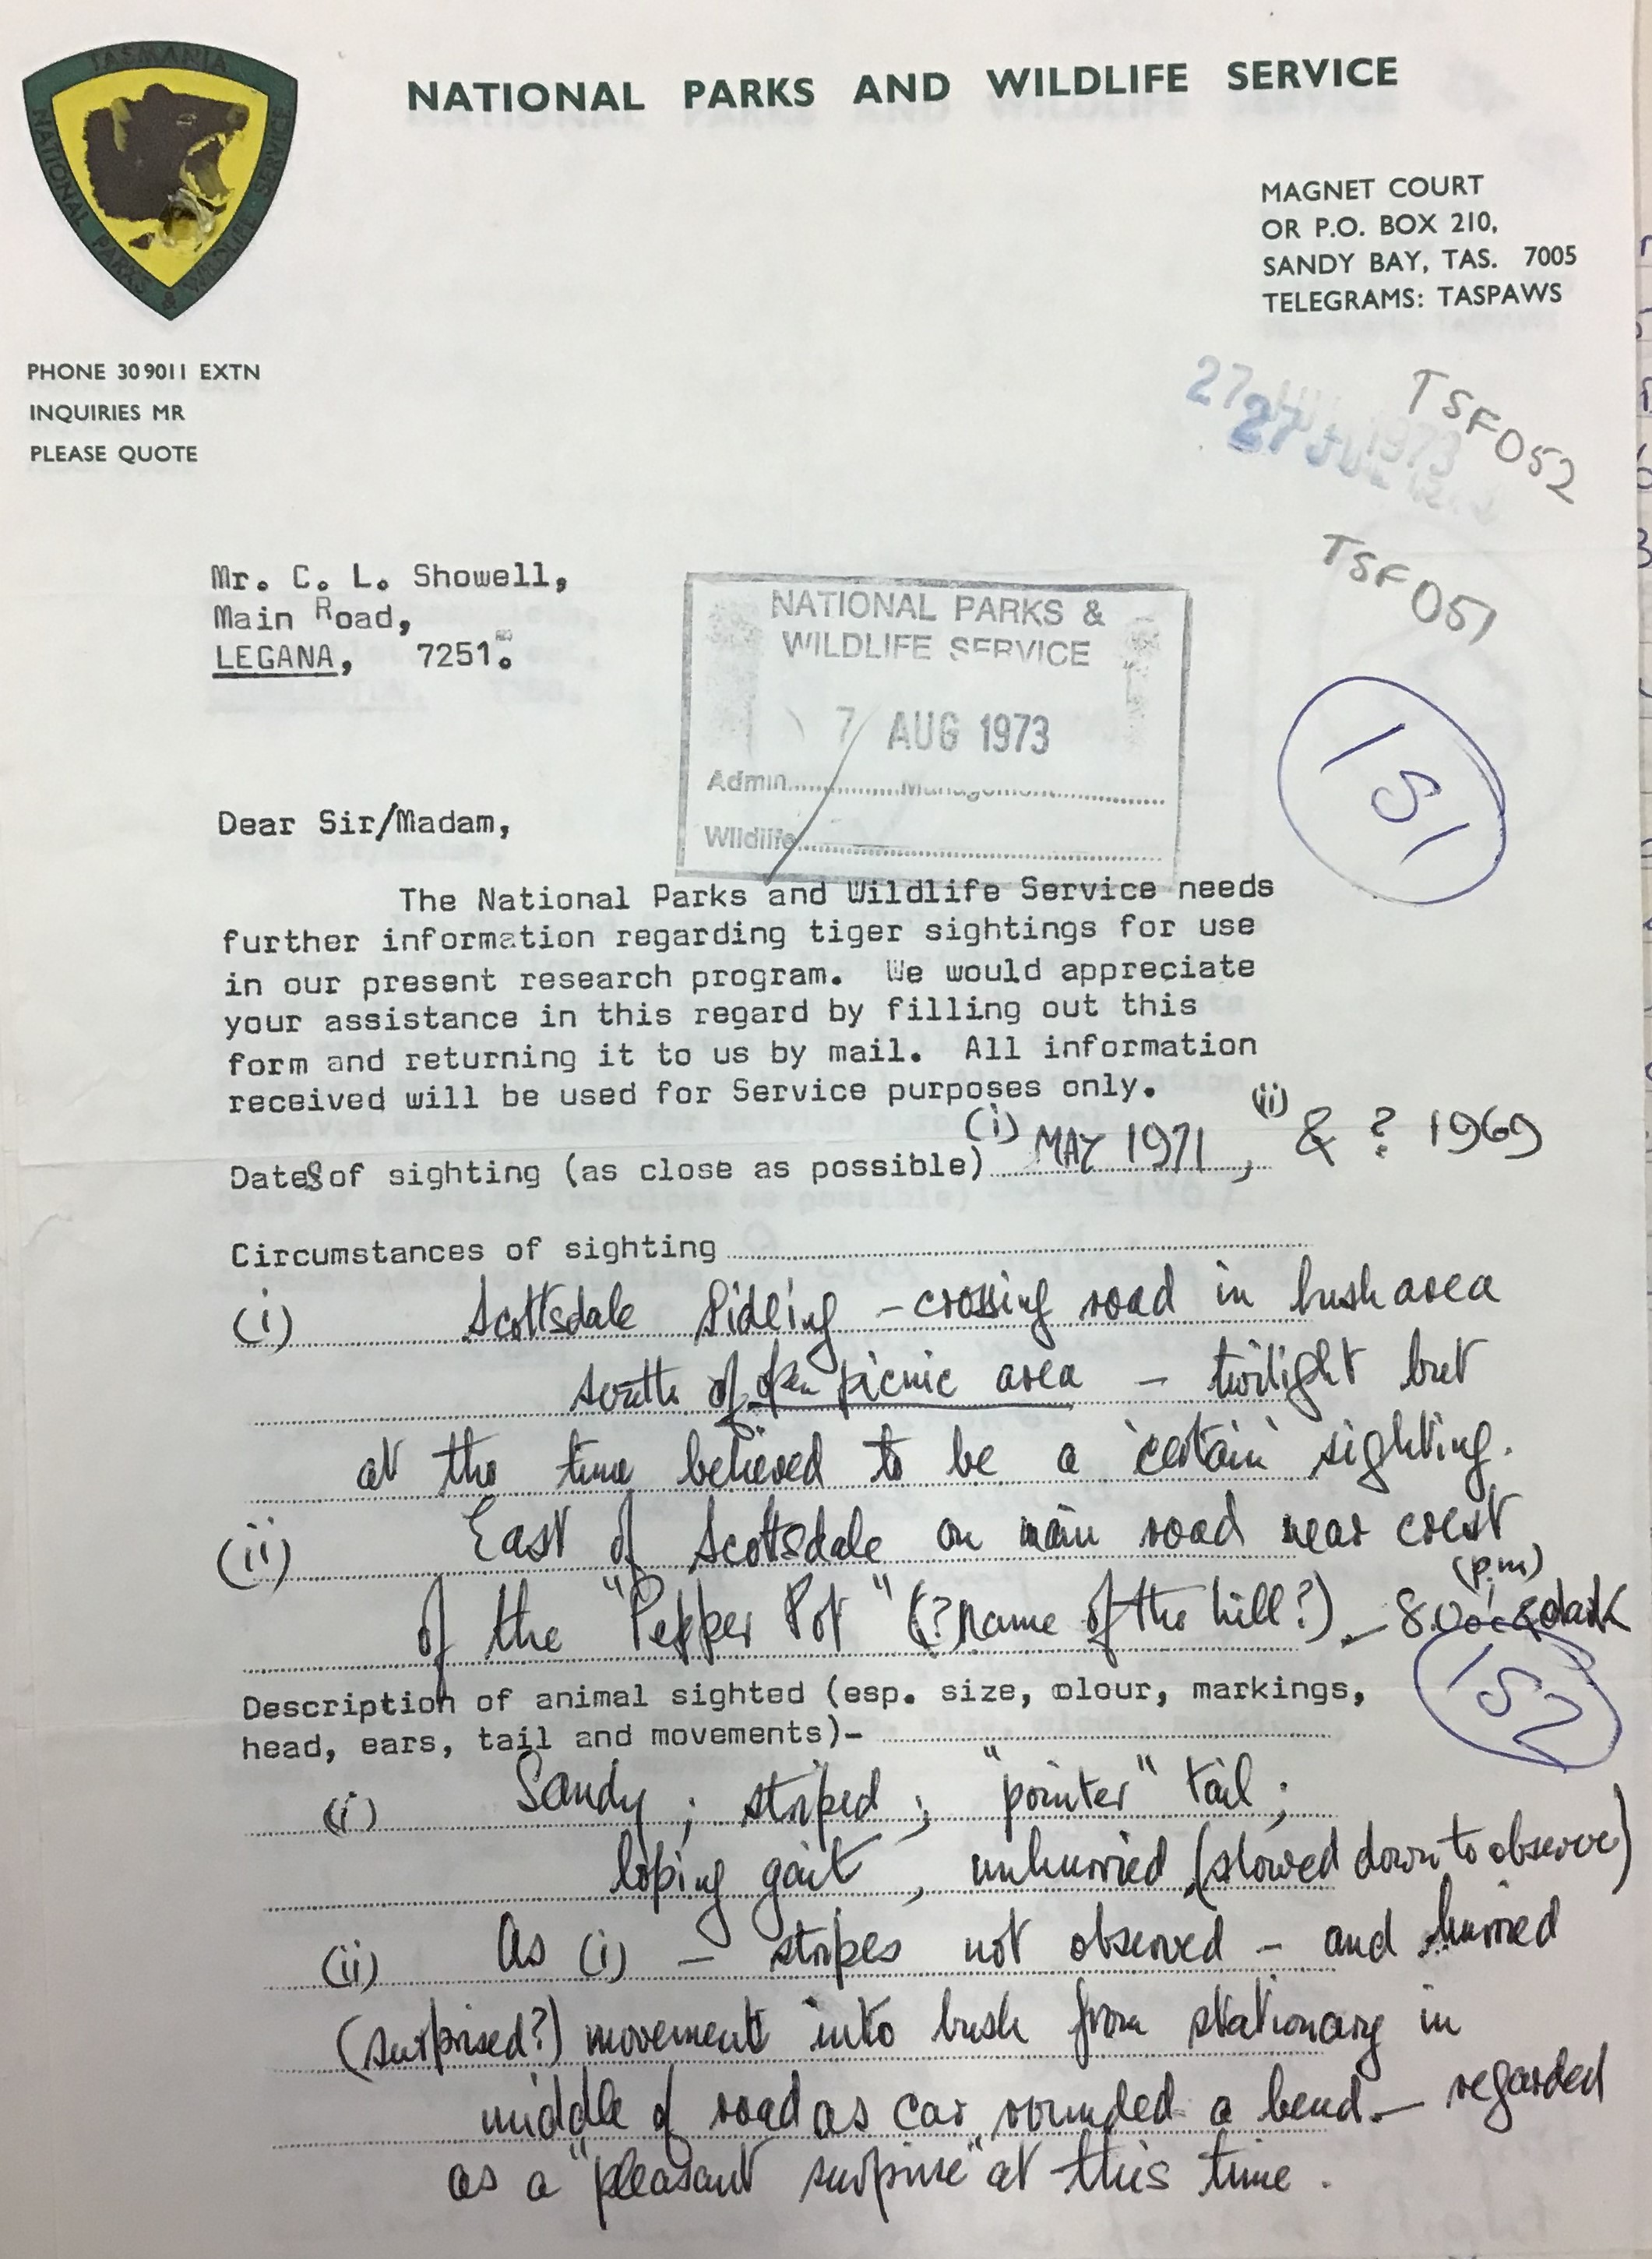 TASMANIA
NATIONAL PARKS & WILDLIFE SERVICE
NATIONAL PARKS AND WILDLIFE SERVICE
MAGNET COURT
OR P.O. BOX 210,
SANDY BAY, TAS. 7005
TELEGRAMS: TASPAWS
PHONE 30 9011 EXTN
INQUIRIES MR
PLEASE QUOTE
27 1973
27 JUL
TSF052
TSF051
Mr. C. L. Showell,
Main Road,
LEGANA, 7251.
NATIONAL PARKS &
WILDLIFE SERVICE
7 AUG 1973
Admin. Management
Wildlife
151
Dear Sir/Madam,
The National Parks and Wildlife Service needs
further information regarding tiger sightings for use
in our present research program. We would appreciate
your assistance in this regard by filling out this
form and returning it to us by mail. All information
received will be used for Service purposes only.
Dates of sighting (as close as possible) (i) MAY 1971, (ii) & ? 1969
Circumstances of sighting
(i) Scottsdale Sidling - crossing road in bush area
south of picnic area - twilight but
at the time believed to be a 'certain' sighting.
(ii) East of Scottsdale on main road near crest
of the "Pepper Pot" (? name of the hill?) - 8.00 (p.m) dark
152
Description of animal sighted (esp. size, colour, markings,
head, ears, tail and movements)-
(i) Sandy ; striped ; "pointer" tail ;
loping gait, unhurried (slowed down to observe)
(ii) As (i) - stripes not observed - and hurried
(surprised?) movement into bush from stationary in
middle of road as car rounded a bend - regarded
as a "pleasant surprise" at this time.